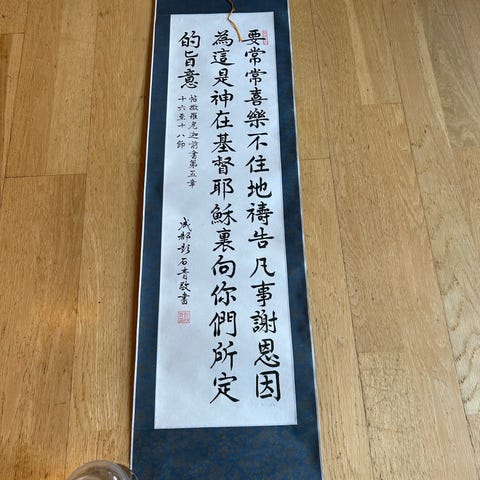 要常常喜樂不住地禱告凡事謝恩因
為這是神在基督耶穌裏向你們所定
的旨意
帖撒羅尼迦前書第五章
十六至十八節
成都彭石青敬書